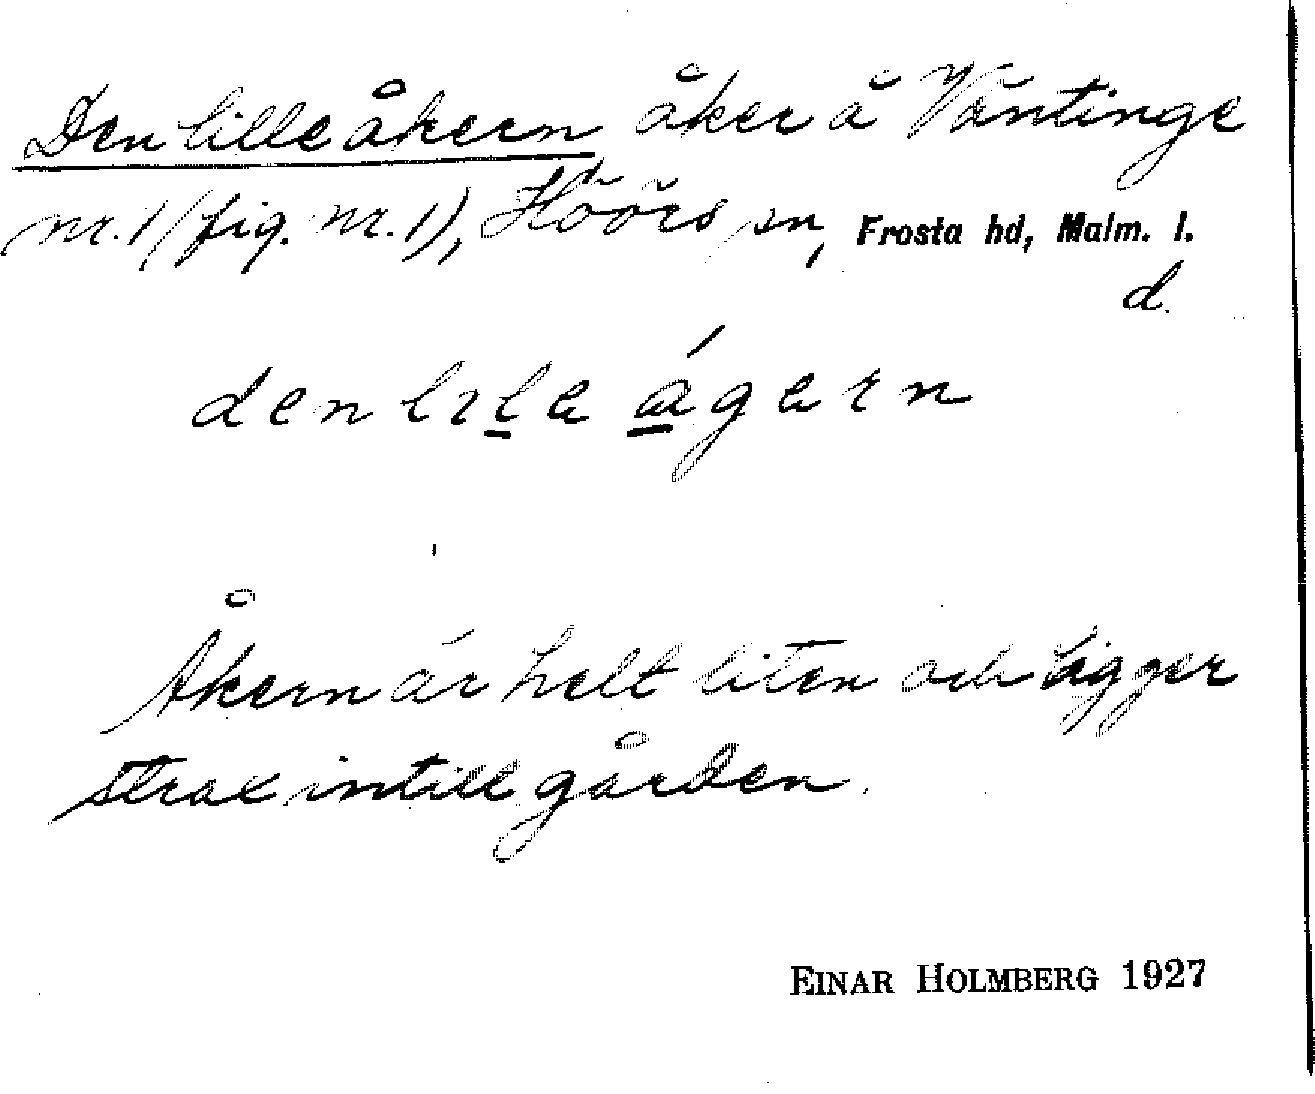 Den lille åkern åker å Väntinge
nr. 1 (fig. nr. 1), Höörs sn, Frosta hd, Malm. l.
d.
den lıle ágern
Åkern är helt liten och ligger
strax intill gården.
EINAR HOLMBERG 1927